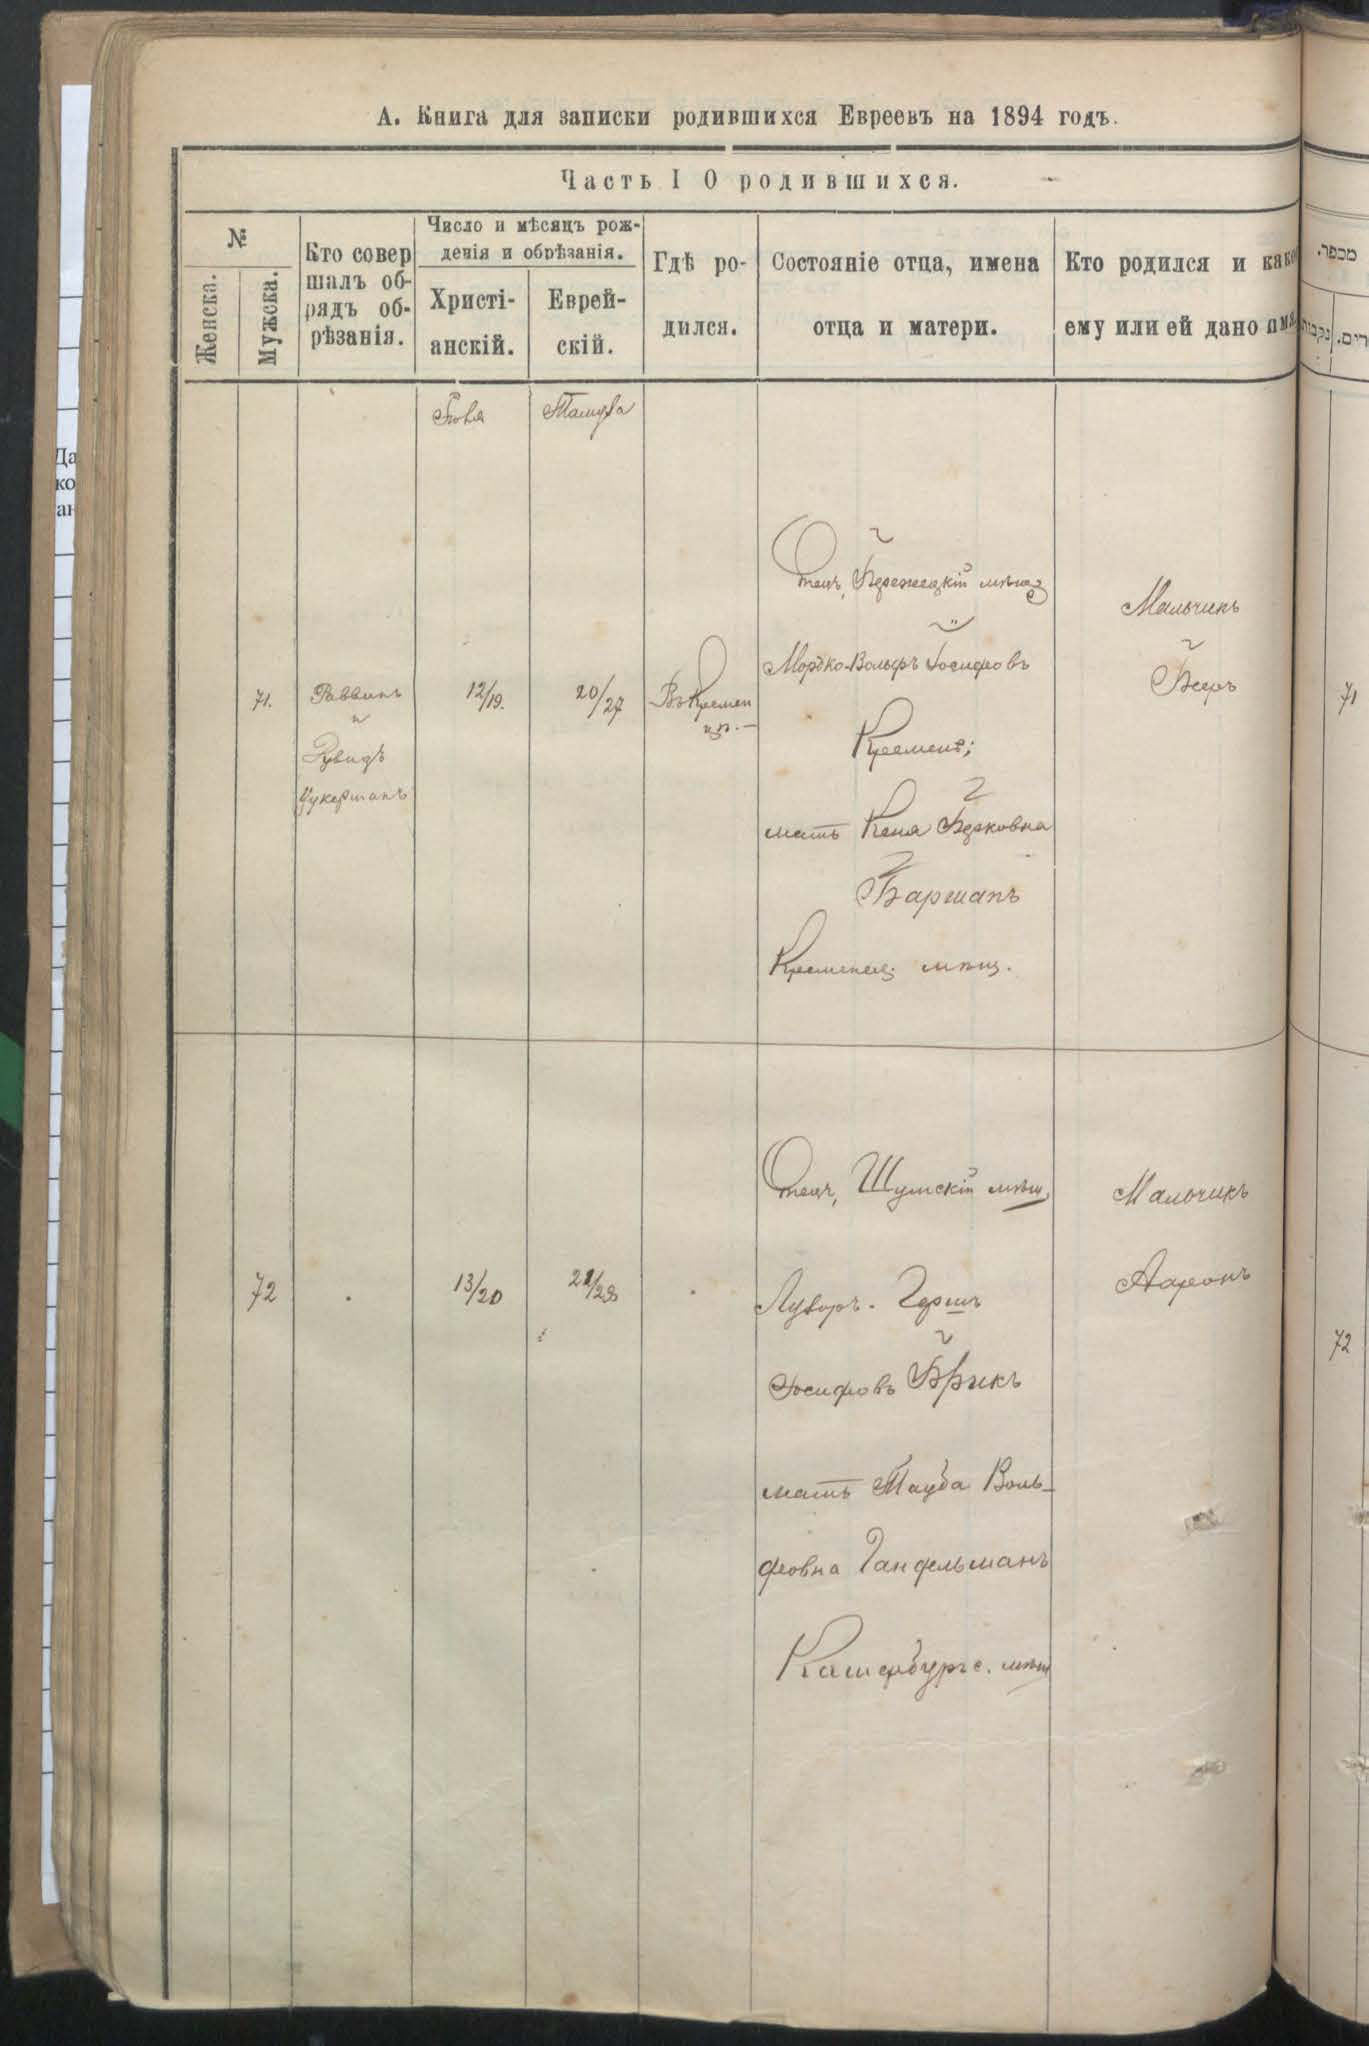 А. Книга для записки родившихся Евреевъ на 1894 годъ.
Часть I О родившихся.
№
Женска.
Мужска.
Кто совер
шалъ об-
рядъ об-
рѣзанія.
Число и мѣсяцъ рож-
денія и обрѣзанія.
Христі-
анскій.
Еврей-
скій.
Гдѣ ро-
дился.
Состояніе отца, имена
отца и матери.
Кто родился и како
ему или ей дано имя.
Іюля
Тамуза
71.
Раввинъ
и
Рувидъ
Цукерманъ
12/19.
20/27
Въ Кремен
цѣ.
Отецъ, Бережецкій мѣщ.
Мордко-Вольфъ Іосифовъ
Кременъ;
мать Кеня Берковна
Баршапъ
Кременец. мѣщ.
Мальчикъ
Беръ
72
13/20
21/28
Отецъ, Шумскій мѣщ.
Лузоръ-Герш
Іосифовъ Брикъ
мать Тауба Воль-
фовна Гандельманъ
Катербургс. мѣщ
Мальчикъ
Ааронъ
מספר.
נקבות
רים.
71
72
Да
ко
ан